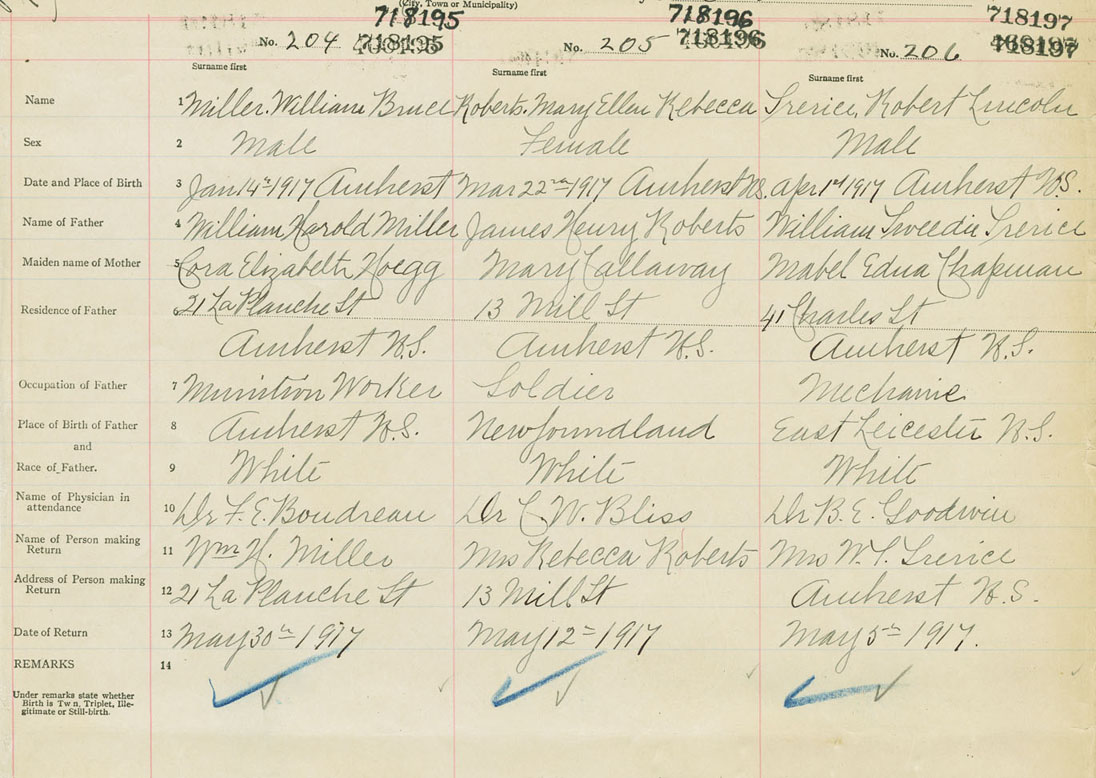 (City, Town or Municipality)
718195 718196 718197
No. 204 718195 No. 205 718196 No. 206 718197
Surname first Surname first Surname first
Name 1 Miller. William Bruce Roberts. Mary Ellen Rebecca Trerice, Robert Lincoln
Sex 2 Male Female Male
Date and Place of Birth 3 Jan 14th 1917 Amherst Mar 22nd 1917 Amherst N.S. Apr 1st 1917 Amherst N.S.
Name of Father 4 William Harold Miller James Henry Roberts William Tweedie Trerice
Maiden name of Mother 5 Cora Elizabeth Hoegg Mary Callaway Mabel Edna Chapman
Residence of Father 6 21 La Planche St 13 Mill St 41 Charles St
Amherst N.S. Amherst N.S. Amherst N.S.
Occupation of Father 7 Munition Worker Soldier Mechanic
Place of Birth of Father 8 Amherst N.S. Newfoundland East Leicester N.S.
and
Race of Father. 9 White White White
Name of Physician in
attendance 10 Dr F. E. Boudreau Dr C. W. Bliss Dr B. E. Goodwin
Name of Person making
Return 11 Wm H. Miller Mrs Rebecca Roberts Mrs W. T. Trerice
Address of Person making
Return 12 21 La Planche St 13 Mill St Amherst N.S.
Date of Return 13 May 30th 1917 May 12th 1917 May 5th 1917.
REMARKS 14
Under remarks state whether
Birth is Tw n, Triplet, Ille-
gitimate or Still-birth.